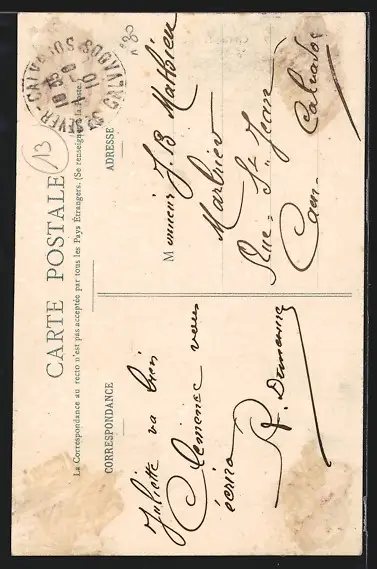 CARTE POSTALE
La Correspondance au recto n'est pas acceptée par tous les Pays Étrangers. (Se renseigner à la Poste.)
CORRESPONDANCE
ADRESSE
CALVADOS
13
Juliette va bien
Clémence vous
écrira
Monsieur J. B Mathieu
Marbrier
Rue St Jean
Caen
Calvados